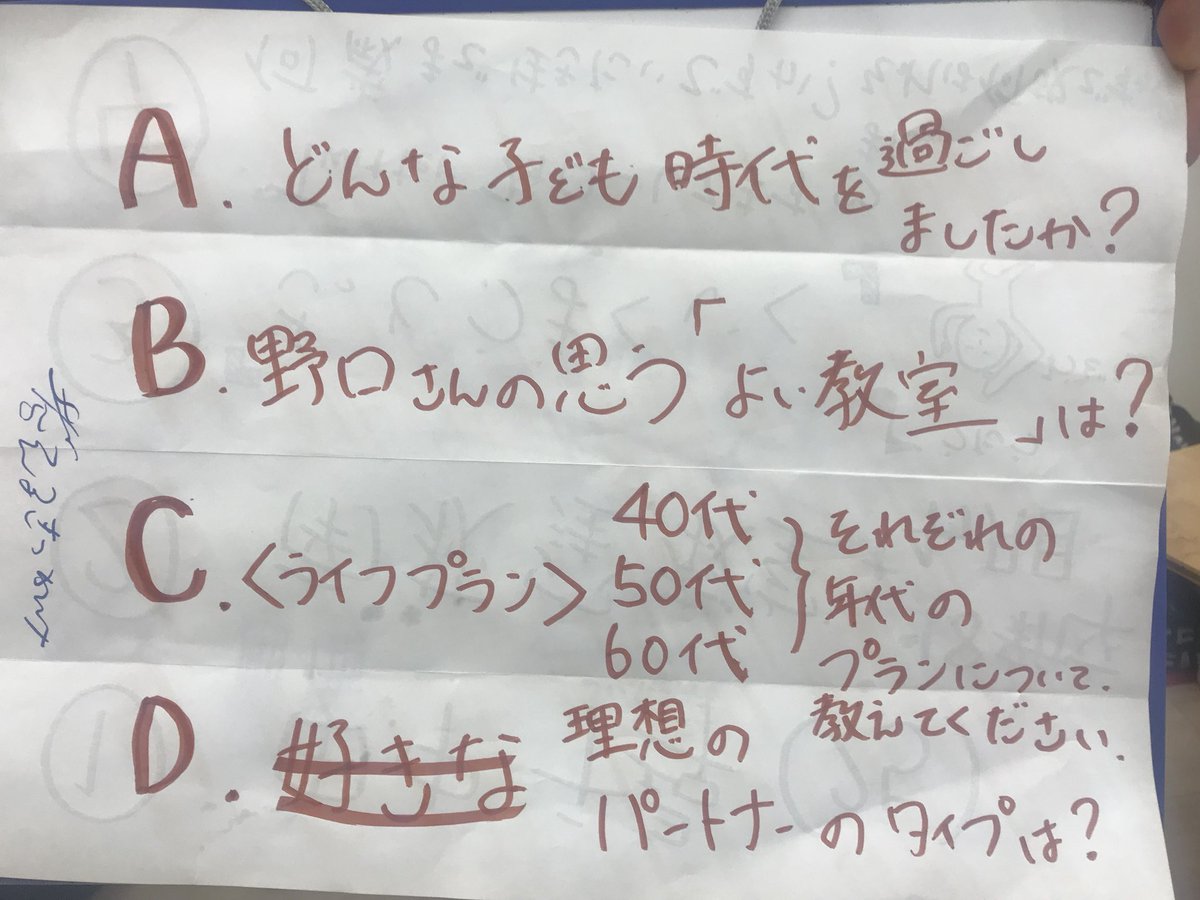 A. どんな子ども時代を過ごし
ましたか?
B. 野口さんの思う「よい教室」は?
C. <ライフプラン> 40代 50代 60代 } それぞれの
年代の
プランについて.
教えてください.
D. 好きな 理想の
パートナーのタイプは?